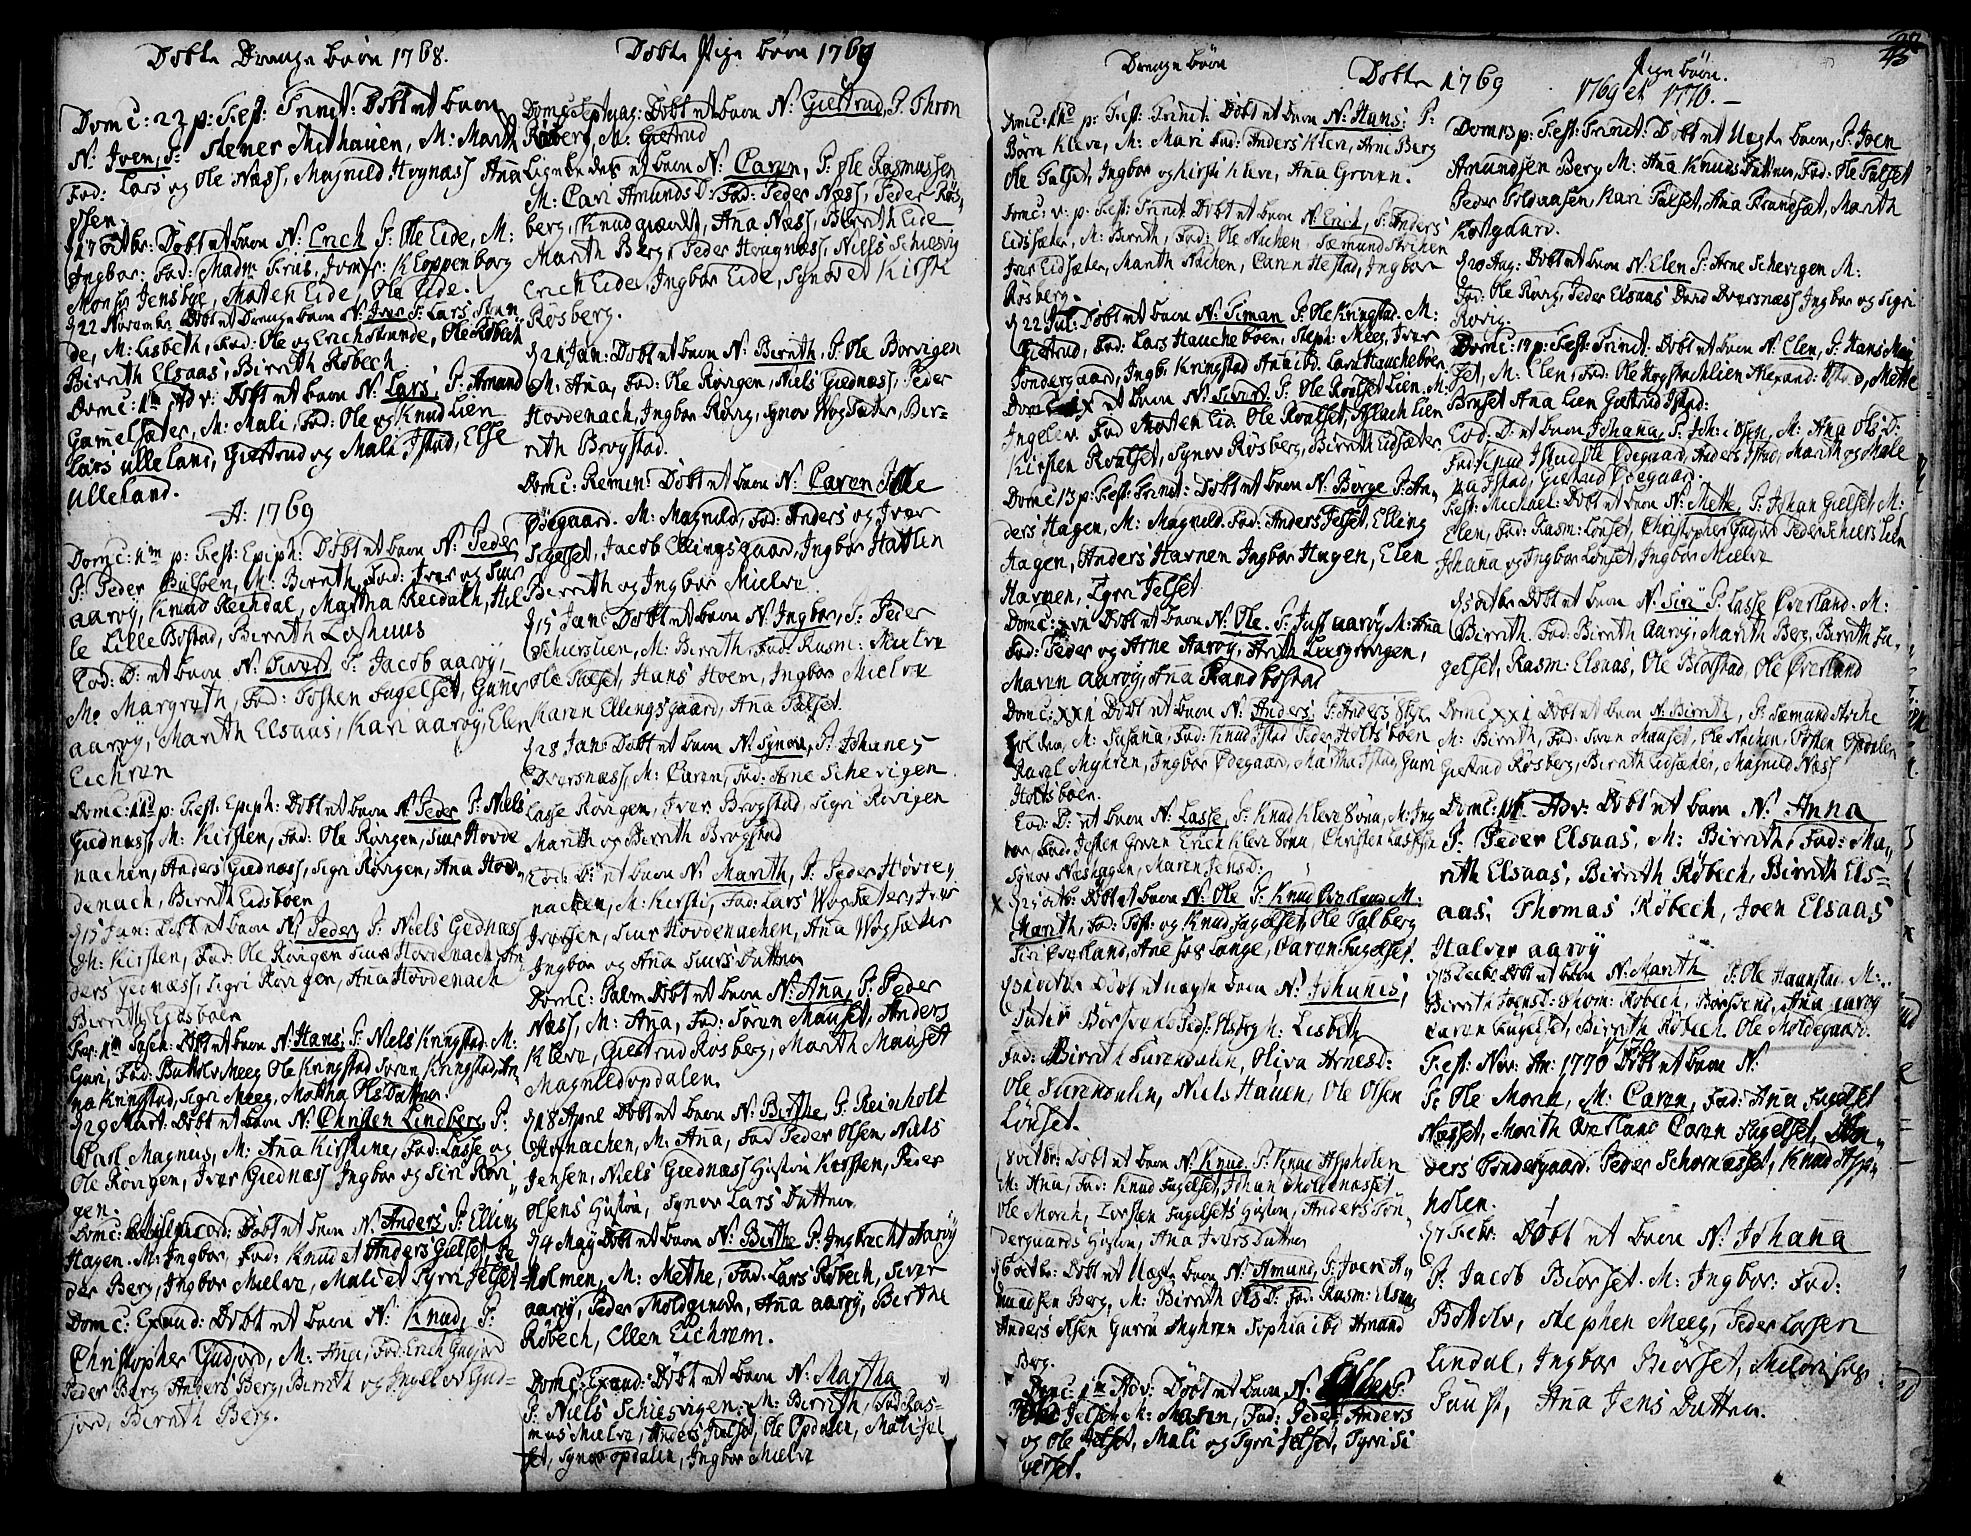 Døbte Drenge børn 1768.
Domc: 23 p: Fest: Trinit: Døbt et barn
N: Joen, F: Stener Methauen, M: Marth
Fad: Lars og Ole Næss, Magnild Hognæss Aña
Olsen.
d 17 Octbr: Døbt et barn N: Erich F: Ole Eide, M:
Ingbor: Fad: Madm Krüs, Jomfr: Kloppenborg
Mons Jensbye, Morten Eide, Ole Eide.
d 22 Novembr Døbt et Drengebarn N: Iver F: Lars Stran
de, M: Lisbeth, Fad: Ole og Erich Strande, Ole Røbech
Birrith Elsaas, Birrith Røbech.
Domc: 1m Adv: Døbt et barn N: Lars, F: Amund
Gamelsæter, M: Mali, Fad: Ole og Knud Lien
Lars Ulleland, Giertrud og Mali Istad, Else
Ulleland.
A: 1769
Domc: 1m p: Fest: Epiph: Døbt et barn N: Peder
F: Peder Bulsøen, M: Birrith, Fad: Iver og Siur
aarøy, Knud Rechdal, Martha Recdalh, Hel
le Lille Bostad, Birrith
Eod: D: et barn N: Sivert F: Jacob aarøy,
M: Margreth, Fad: Tosten Fugelset, Guñer
aarøy, Marith Elsaas, Kari aarøy, Elen
Eichrem
Domc: 2do p: Fest: Epiph: Døbt et barn N: Peder F: Niels
Giednæss M: Kirsten, Fad: Ole Rørigen, Siur Hovde
nachen, Anders Giednæss, Sigri Rørigen, Ana Hov
denach, Birrith Eidsbøen
d 15 Jan: Døbt et barn N: Peder F: Niels Gednæss
M: Kirsten, Fad: Ole Rørigen Siur Hovdenach An
ders Gednæss, Sigri Rørigen, Aña Hovdenach
Birrith Eidsbøen
N: Hans, F: Niels Kringstad M:
Guri, Fad: Buttolv Meeg Ole Kringstad Soren Kringstad, An
na Kringstad, Sigri Meeg, Martha Ols Datter.
d 29 Mart: Døbt et barn N: Christen Lindberg, F:
Carl Magnus, M: Aña Kirstine, Fad: Lasse og
Ole Rørigen, Iver Giednæss Ingbor og Siri Røri
gen.
Domc: Misericord: Døbt et barn N: Anders, F: Elling
Hagen. M: Ingbor, Fad: Knud et Anders Gielset, Pe
der Berg, Ingbor Mielve, Mali et Tyrri Jelset
Domc: Exaud: Døbt et barn N: Knud, F:
Christopher Gudjord, M: Aña, Fad: Erich Gudjord
Peder Berg Anders Berg, Birrith og Ingelev Gud=
jord, Birrith Berg.
Døbte Pige børn 1769
Domc: Septuag: Døbt et barn N: Giertrud, F: Thron
Røsberg, M: Giertrud
Ligeledes et barn N: Caren, F: Ole Rasmussen
M: Cari Amunds D: Fad: Peder Næss, Peder Røs
berg, Knud, Ana Næss, Birrith Eide
Marith Berg, Peder Hougnæss, Niels Schiesvig
Erich Eide, Ingbor Eide, Synøvet Kirste
Røsberg.
d 21 Jan: Døbt et barn N: Birrith, F: Ole Borvigen
M: Aña, Fad: Ole Rørigen, Niels Giednæss, Peder
Hovdenach, Ingbor Rørig, Synov Wogsæter, Bir=
rith Brogstad.
Domc: Remin: Døbt et barn N: Caren F: Ole
Ødegaard. M: Magnild, Fad: Anders og Iver
, Jacob Ellingsgaard, Ingbor Hatlin
Birrith og Ingbor Mielve
d 15 Jan: Døbt et barn N: Ingbor, F: Peder
Schierslien, M: Birrith, Fad: Rasm: Mielve
Ole Talset, Hans Hoem, Ingbor Mielve
Karen Ellingsgaard, Aña Talset.
d 28 Jan: Døbt et barn N: Synov, F: Johañes
Dversnæss, M: Caren, Fad: Arne Schevigen
Lasse Rørigen, Iver Brogstad, Sigri Rørigen
Marith og Birrith Brogstad
Eod: D: et barn N: Marith, F: Peder Hovde
nachen, M: Kirsti, Fad: Lars Wogsæter, Iver
Iversen, Siur Hovdenachen, Aña Wogsæter
Ingbor og Aña Siurs Datter
Domc: Palm Døbt et barn N: Aña, F: Peder
Næss, M: Aña, Fad: Soren Mauset, Anders
Kleve, Giertrud Røsberg, Marith Mauset
Magnild Opdalen.
d 18 April Døbt et barn N: Birthe, F: Reinholt
Hofnachen, M: Aña, Fad Peder Olsen, Niels
Jensen, Niels Giednæss Hustru Kirsten, Peder
Olsens Hustru, Synov Lars Datter.
d 4 May Døbt et barn N: Birthe F: Ingbrecht Aarøy
holmen, M: Methe, Fad: Lars Røbech, Siver
aarøy, Peder Moldgaade, Aña aarøy, Birthe
Røbech, Ellen Eichrem.
Domc: Exaud: Døbt et barn N: Martha
F: Niels Schiesvigen, M: Birrith, Fad: Ras=
mus Mielve, Anders Jelset, Ole Opdalen, Mali Jel
set, Synov Opdalen, Ingbor Mielve
Drenge børn
Døbte 1769
Domc: 2do p: Fest: Trinit: Døbt et barn N: Hans, F:
Børre Kleve, M: Mari Fad: Anders Kleve, Arne Berg
Ole Talset, Ingbor og Kirsti Kleve, Aña Groven.
Domc: v: p: Fest: Trinit: Døbt et barn N: Erich, F: Anders
Eidssæter, M: Birrith, Fad: Ole Nachen, Sæmund Striken
Iver Eidsæter, Marith Nachen, Caren Hestad, Ingbor
Røsberg.
d 22 Jul: Døbt et barn N: Siman F: Ole Kringstad. M:
Giertrud, Fad: Lars Hauchebøen, Steph: Meeg, Iver
Tondergaard, Ingb: Kringstad Aña ibd: Lars Haucheboen.
Dom: IX et barn N: Sivert F: Ole Roalset Lien, M:
Ingelev Fad Morten Eid. Ole Roalset, Aslach Lien
Kirsten Roalset, Synov Røsberg, Birrith Eidsæter.
Domc 13 p: Fest: Trinit: Døbt et barn N: Børge F: An
ders Hagen, M: Magnild. Fad: Anders Jelset, Elling
Hagen, Anders Havnen Ingbor Hagen, Elen
Havnen, Tyri Jelset
Domc: xvi Døbt et barn N: Ole. F: Just aarøy M: Aña
Fad: Peder og Arne Aarøy,
Maren aarøy, Aña Strandbostad
Domc: xxi Døbt et barn N: Anders F: Anders
M: Susana, Fad: Knud Istad Peder Holtsbøen
Karel Myhren, Ingbor Ødegaar, Martha Istad, Guru
Holtsbøen.
Eod: D: et barn N: Lasse, F: Knud Kleve Sona, M: Ing
bor, Fad: Josten Groven Erich Kleve Sona, Christen Lassesen
Synov Næshagen, Maren Jensd:
d 25 Octb: Døbt et barn N: Ole F: Knud Øverland M:
Marith, Fad: Tost: og Knud Fugelset, Ole Talberg
Siri Øverland, Ane Sos Lange, Caren Fugelset.
Døbt et uægte barn N: Johanes,
: Lisbeth
Fad: Birrith Surendalen, Oliva Arnesd:
Ole Surendalen, Niels Hauen, Ole Olsen
Lønset.
8 Octbr: Døbt et barn N: Knud, F: Knud Aspholen
M: Ana, Fad: Knud Fugelset, Johan Moldenæsset
Ole Morch, Torsten Fugelsets Hustru, Anders Ton
dergaards Hustru, Ana Ivers Datter
Octbr: Døbt et Uægte barn N: Amund, F: Joen A
mundsen Berg, M: Birrith Ols D: Fad: Rasm: Elsaas
Anders Olsen Guru Myhren Sophia ibd: Amund
Berg.
Domc: 1m Adv: Døbt et barn N: F:
Jelset M: Maren, Fad: Peder, Anders
og Ole Jelset, Mali og Tyrri Jelset, Tyrri Si
gerset.
Pige børn.
1769 et 1770.—
Dom 13 p: Fest: Trinit: Døbt et Uægte barn, F: Joen
Amundsen Berg, M: Aña Knuds Datter, Fad: Ole Talset
Peder Toldaasen, Kari Talset, Aña Strandset, Marith
Kostgaard.
d 20 Aug: Døbt et barn N: Elen F: Arne Schevigen M:
Fad: Ole Rørig, Peder Elsaas David Dversnæss Ingbor og Sigri
Rørig.
Domc: 14 p: Fest: Trinit: Døbt et barn N: Elen, F: Hans Moj
set, M: Elen, Fad: Ole Alexand: Istad, Mette
Broset Ana Lien Giertrud Istad:
Eod: D: et barn Johaña, F: Joh: Olsen, M: Aña Ols D:
Fad: Knud Istad, Ole Ødegaard, Anders Istad, Marith og Male
na Istad, Giertrud Ødegaard.
Fest: Michael: Døbt et barn N: Methe, F: Johan Gielset, M:
Elen, Fad: Rasm: Lønset, Christopher Gudjor Peder Schierslien
Johaña og Ingbor Lønset, Ingbor Mielve
d 5 Octbr Døbt et barn N: Siri F: Lasse Øverland. M:
Birrith. Fad: Birrith Aarøy, Marith Berg, Birrith Fu
gelset, Rasm: Elsaas, Ole Biorstad, Ole Øverland
Domc xxi Døbt et barn N: Birrith, F: Sæmund Striche
M: Birrith, Fad: Soren Mauset, Ole Nachen, Tosten Opdalen
Giertrud Røsberg, Birrith Eidsæter, Magnild Næss
Domc: 1m Adv: Døbt et barn N: Anna
F: Peder Elsaas, M: Birrith, Fad: Ma
rith Elsaas, Birrith Røbech, Birrith Els=
aas, Thomas Røbech, Joen Elsaas
Halver aarøy
d 13 Decbr Døbt et barn N: Marith F: Ole Haunstad, M:
Birrith Joensd: Thom: Røbech, Aña aarøy
Caren Fugelset, Birrith Røbech Ole Moldegaard.
Fest: Nov: An: 1770 Døbt et barn N:
F: Ole Morch, M: Caren, Fad: Aña Fugelset
Næsset, Marith Øverland Caren Fugelset, An
ders Tondergaard. Peder Schornæsset, Knud Asp
holen.
d 7 Febr: Døbt et barn N: Johaña
F: Jacob Biorset M: Ingbor: Fad:
Bottolv, Stephen Meeg, Peder Larsen
Lindal, Ingbor Biørset,
Aña Jens Datter.